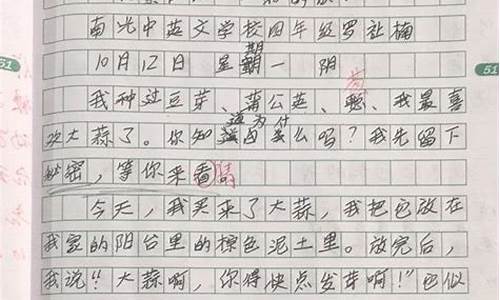 南光中英文学校四年级罗祉楠
10月12日 星期一 阴
我种过豆芽、蒲公英、葱、我最喜
欢大蒜了。你知道为什么吗?我先留下
秘密,等你来猜。
今天,我买来了大蒜,我把它放在
我家的阳台里的棕色泥土里。放完后,
我说“大蒜啊,你得快点发芽啊!”它似
51
51